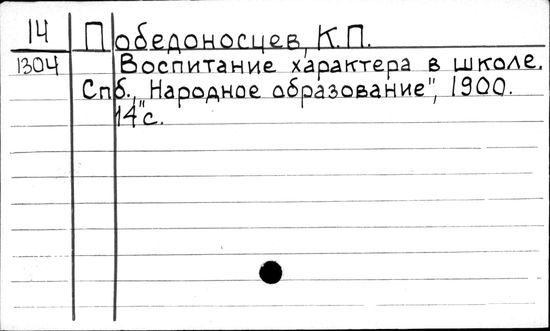 14 Победоносцев, К.П.
1304 Воспитание характера в школе.
Спб., "Народное образование", 1900.
14 с.